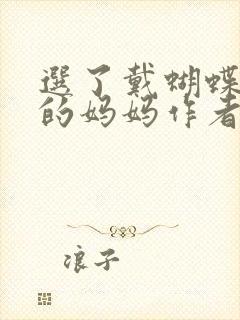 選了戴蝴蝶
的妈妈作者
浪子